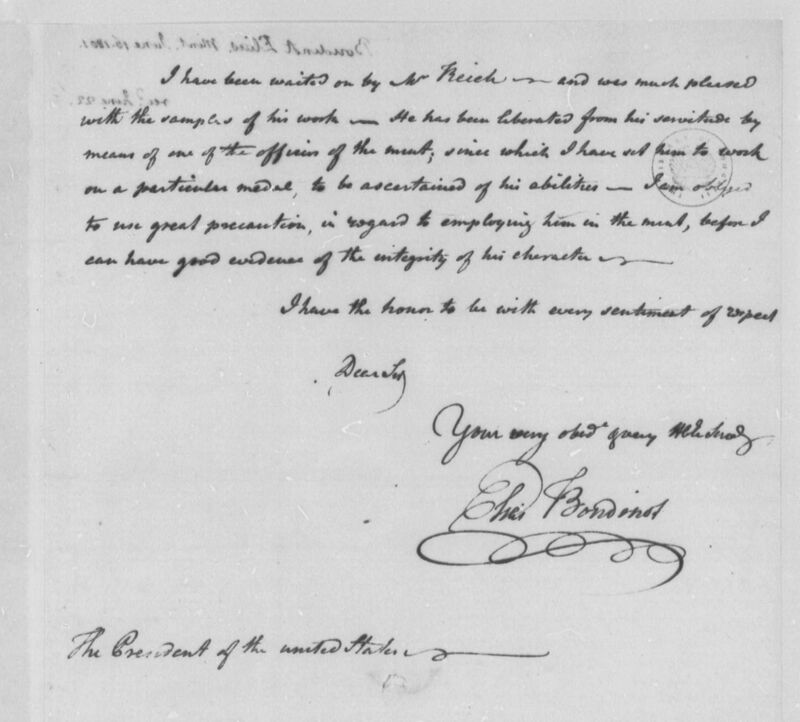 Boudinot Elias. Mint. June 16. 1801.
recd June 22.
I have been waited on by Mr Reich — and was much pleased
with the samples of his work — He has been liberated from his servitude by
means of one of the officers of the mint; since which I have set him to work
on a particular medal, to be ascertained of his abilities — I am obliged
to use great precaution, in regard to employing him in the mint, before I
can have good evidence of the integrity of his character —
I have the honor to be with every sentiment of respect
Dear Sir
Your very obedt & very Hble Servt
Elias Boudinot
The President of the united States —